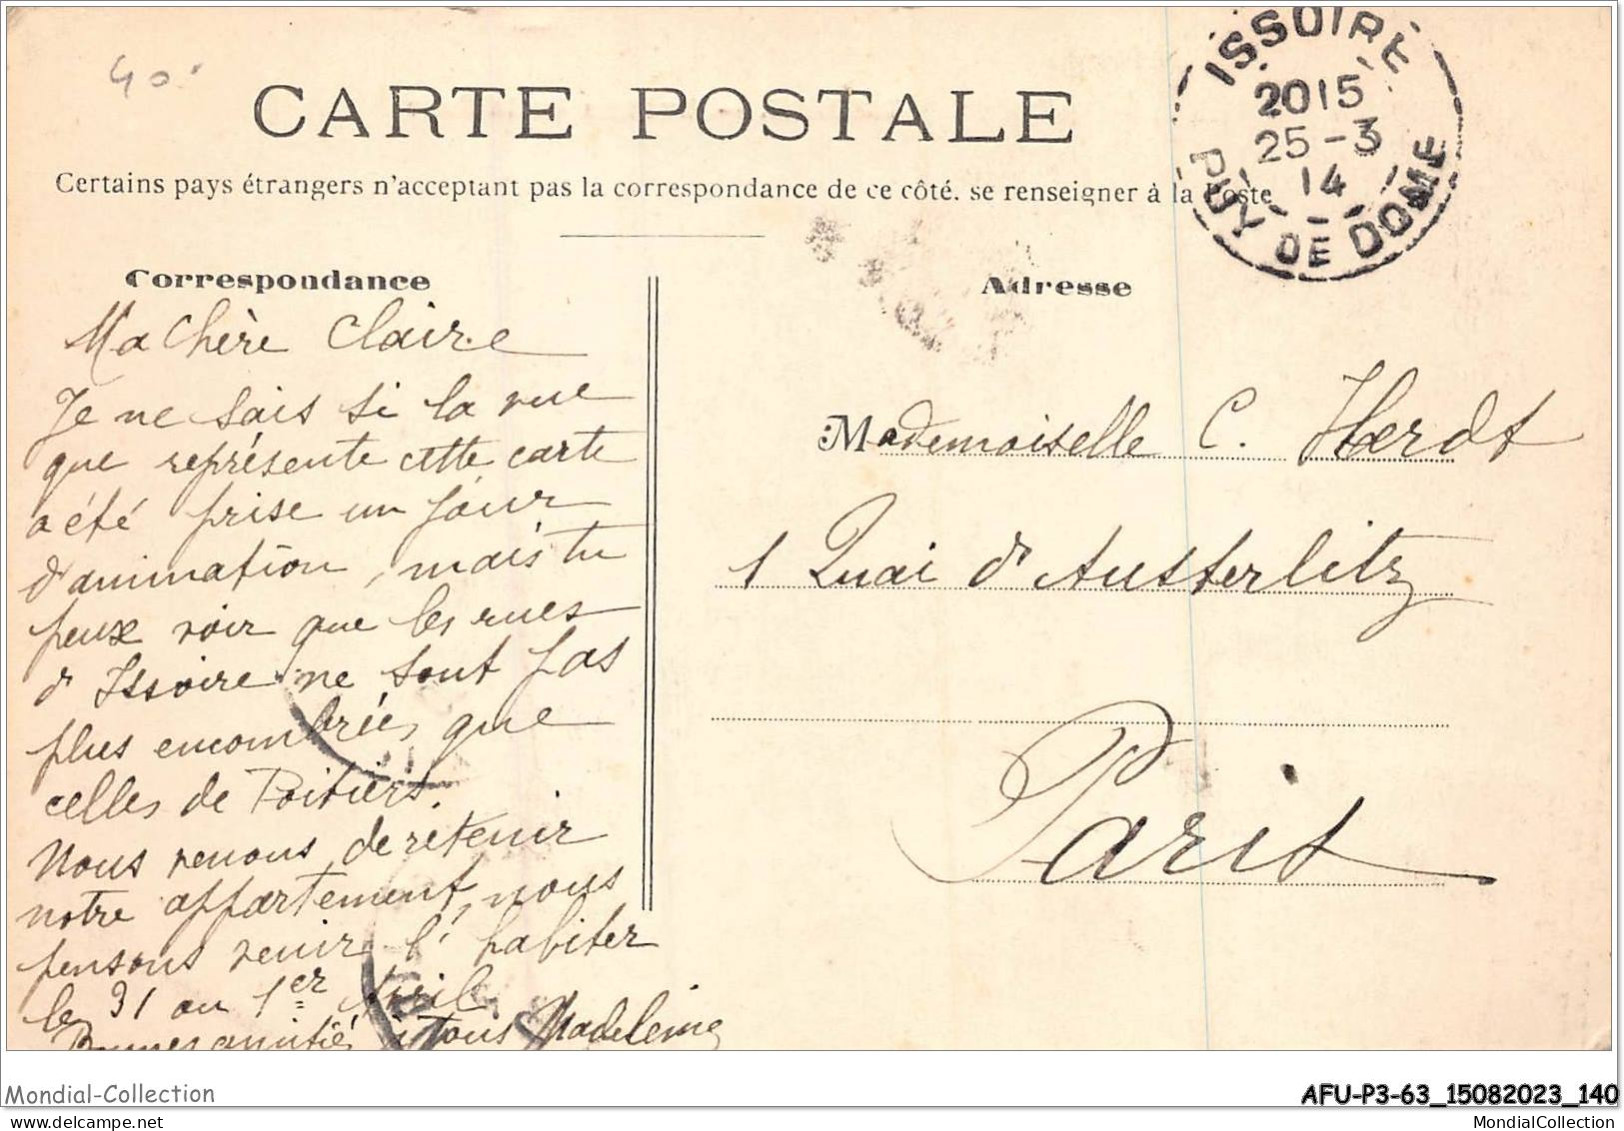 40.
CARTE POSTALE
Certains pays étrangers n'acceptant pas la correspondance de ce côté. se renseigner à la Poste
ISSOIRE
2015
25-3
14
PUY DE DOME
Correspondance
Ma Chère Claire
Je ne sais si la vue
que représente cette carte
a été prise un jour
d'animation, mais tu
peux voir que les rues
d'Issoire ne sont pas
plus encombrées que
celles de Poitiers.
Nous venons de retenir
notre appartement, nous
pensons venir l'habiter
le 31 ou 1er Avril
Bonnes amitiés à tous Madeleine
Adresse
Mademoiselle C. Haerdt
1 Quai d'Austerlitz
Paris
Mondial-Collection
AFU-P3-63_15082023_140
www.delcampe.net
MondialCollection